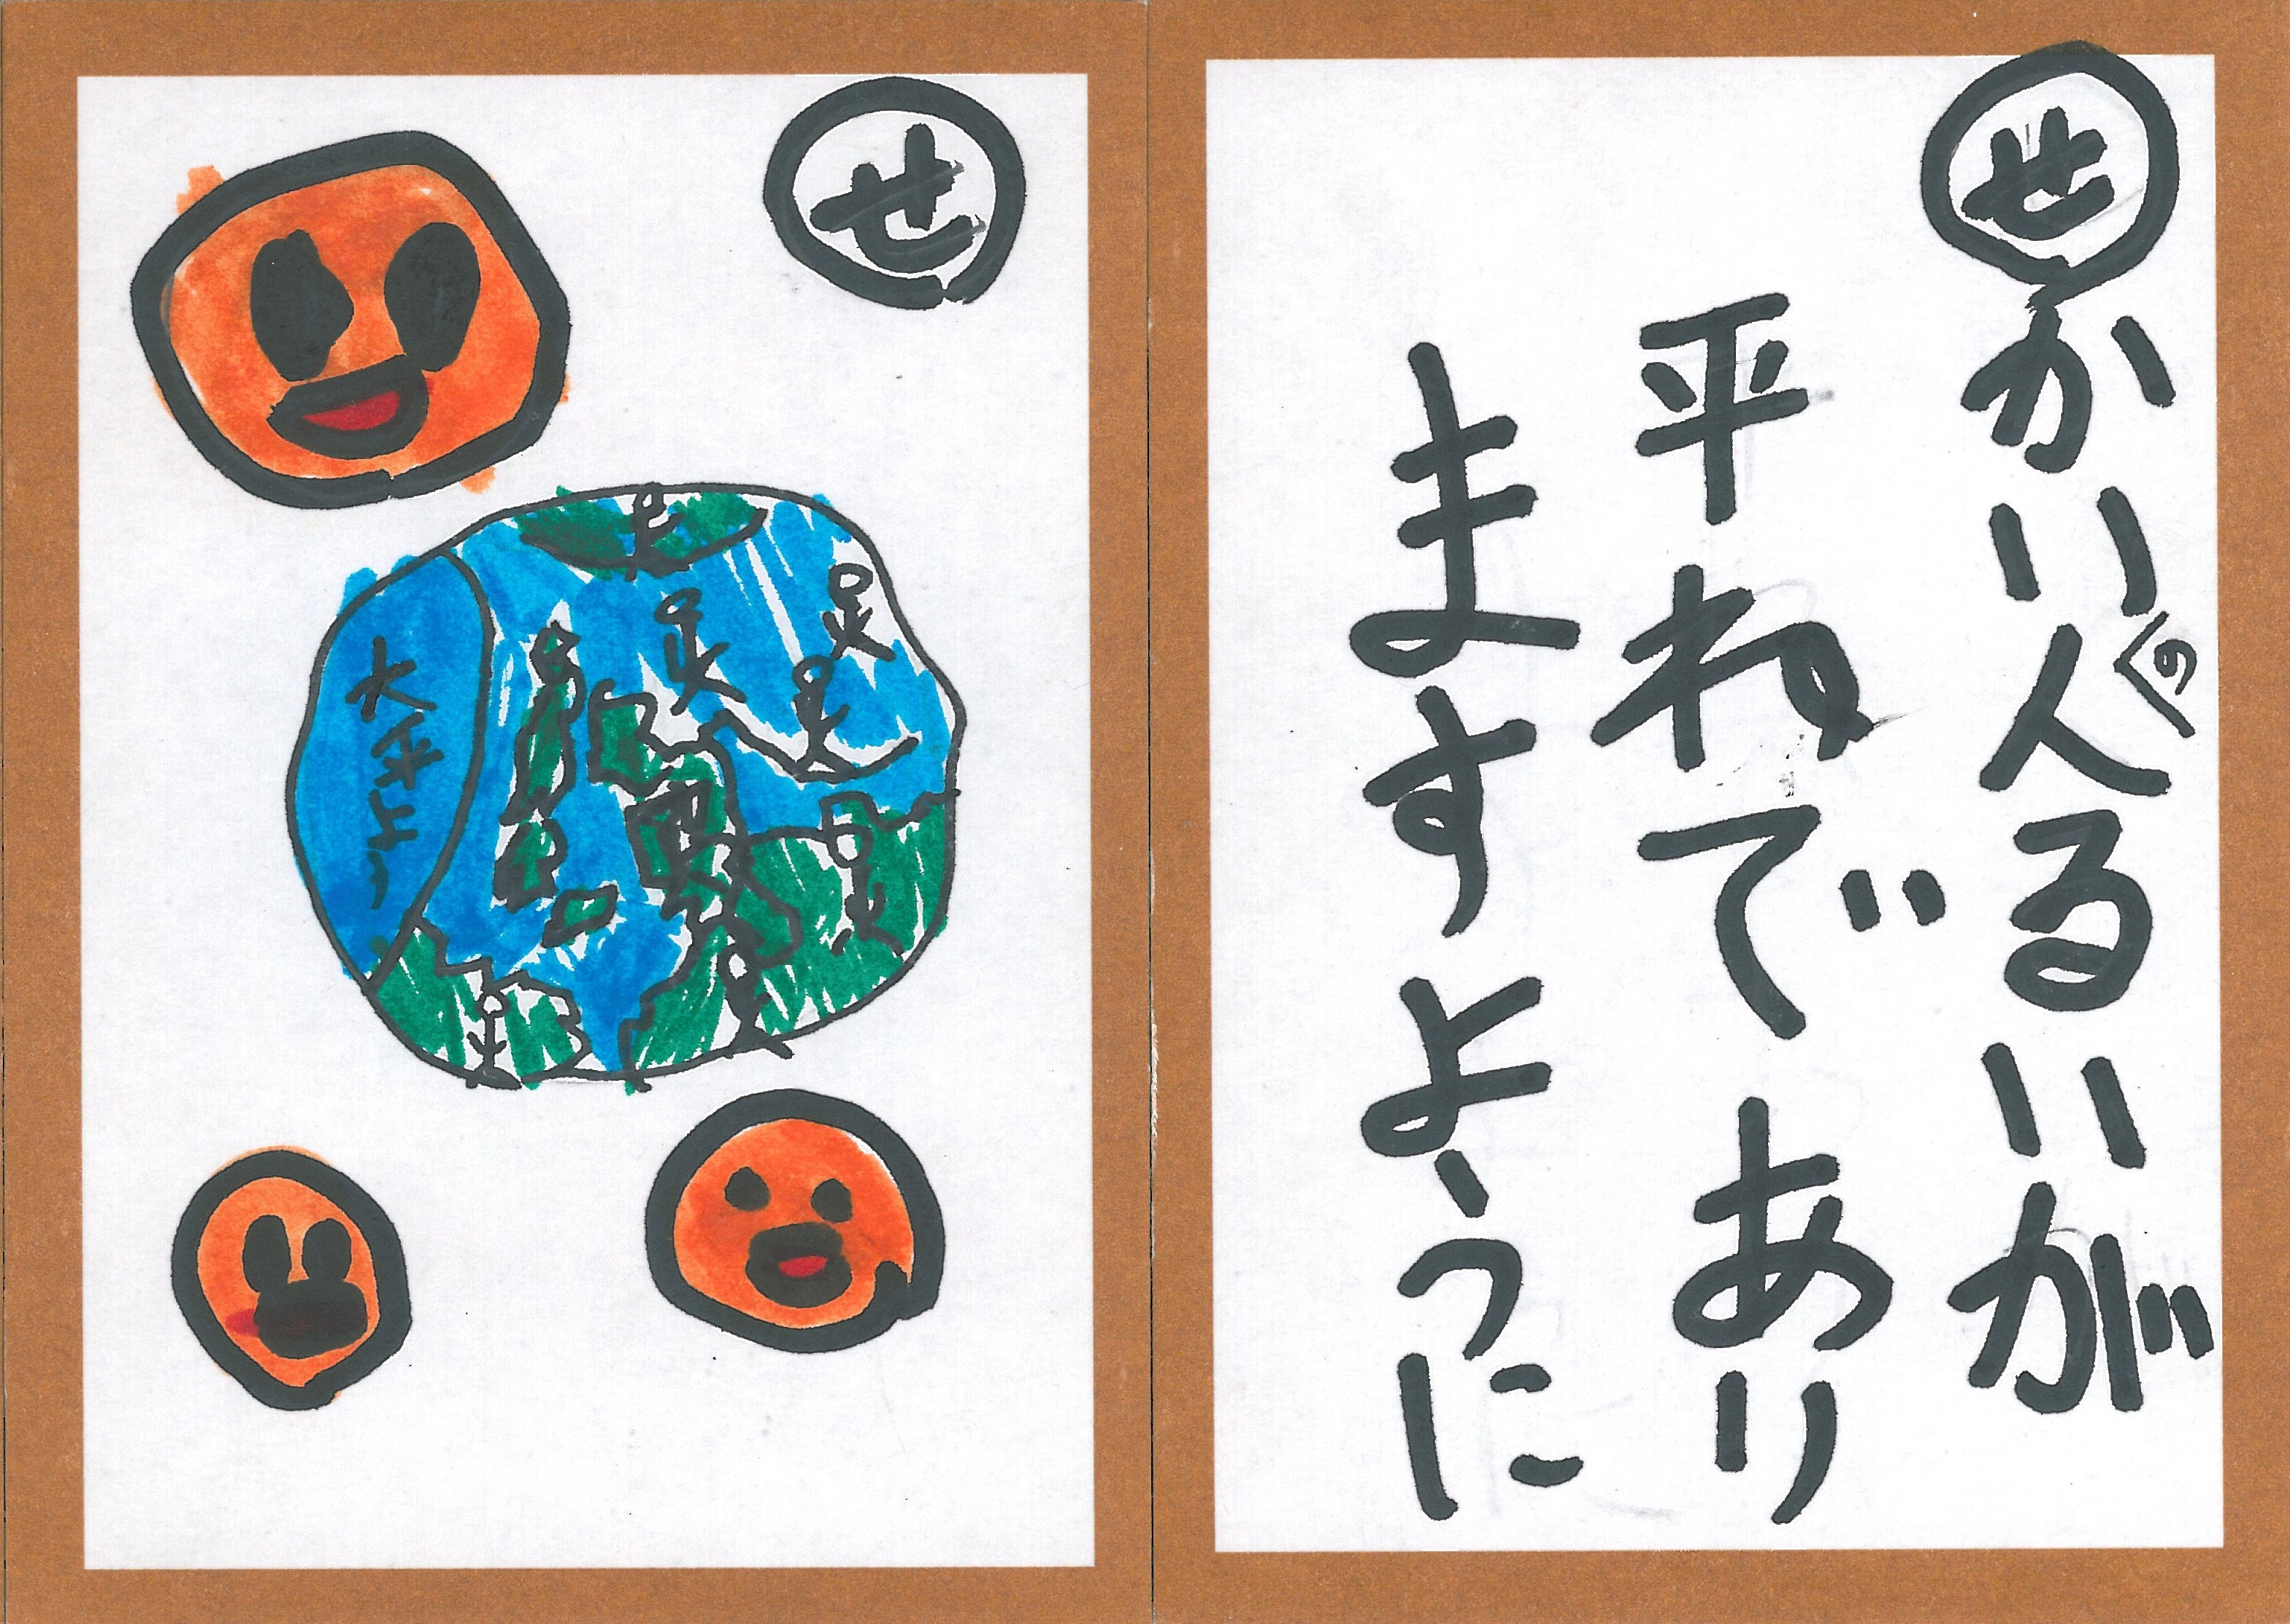 せかいの人るいが
平ねであり
ますように
せ
大平よう